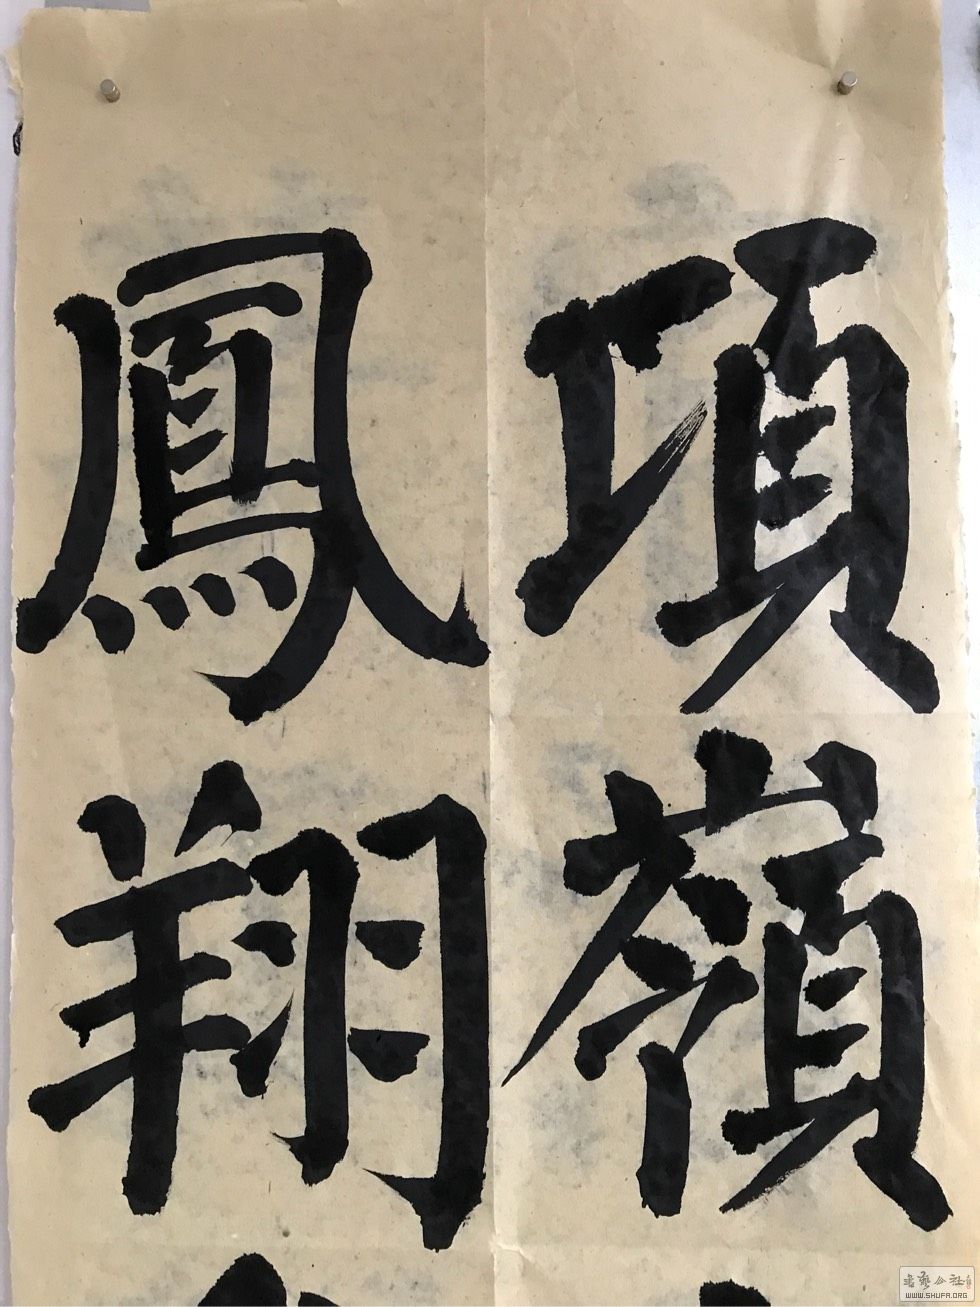 項嶺
鳳翔
書藝公社
WWW.SHUFA.ORG